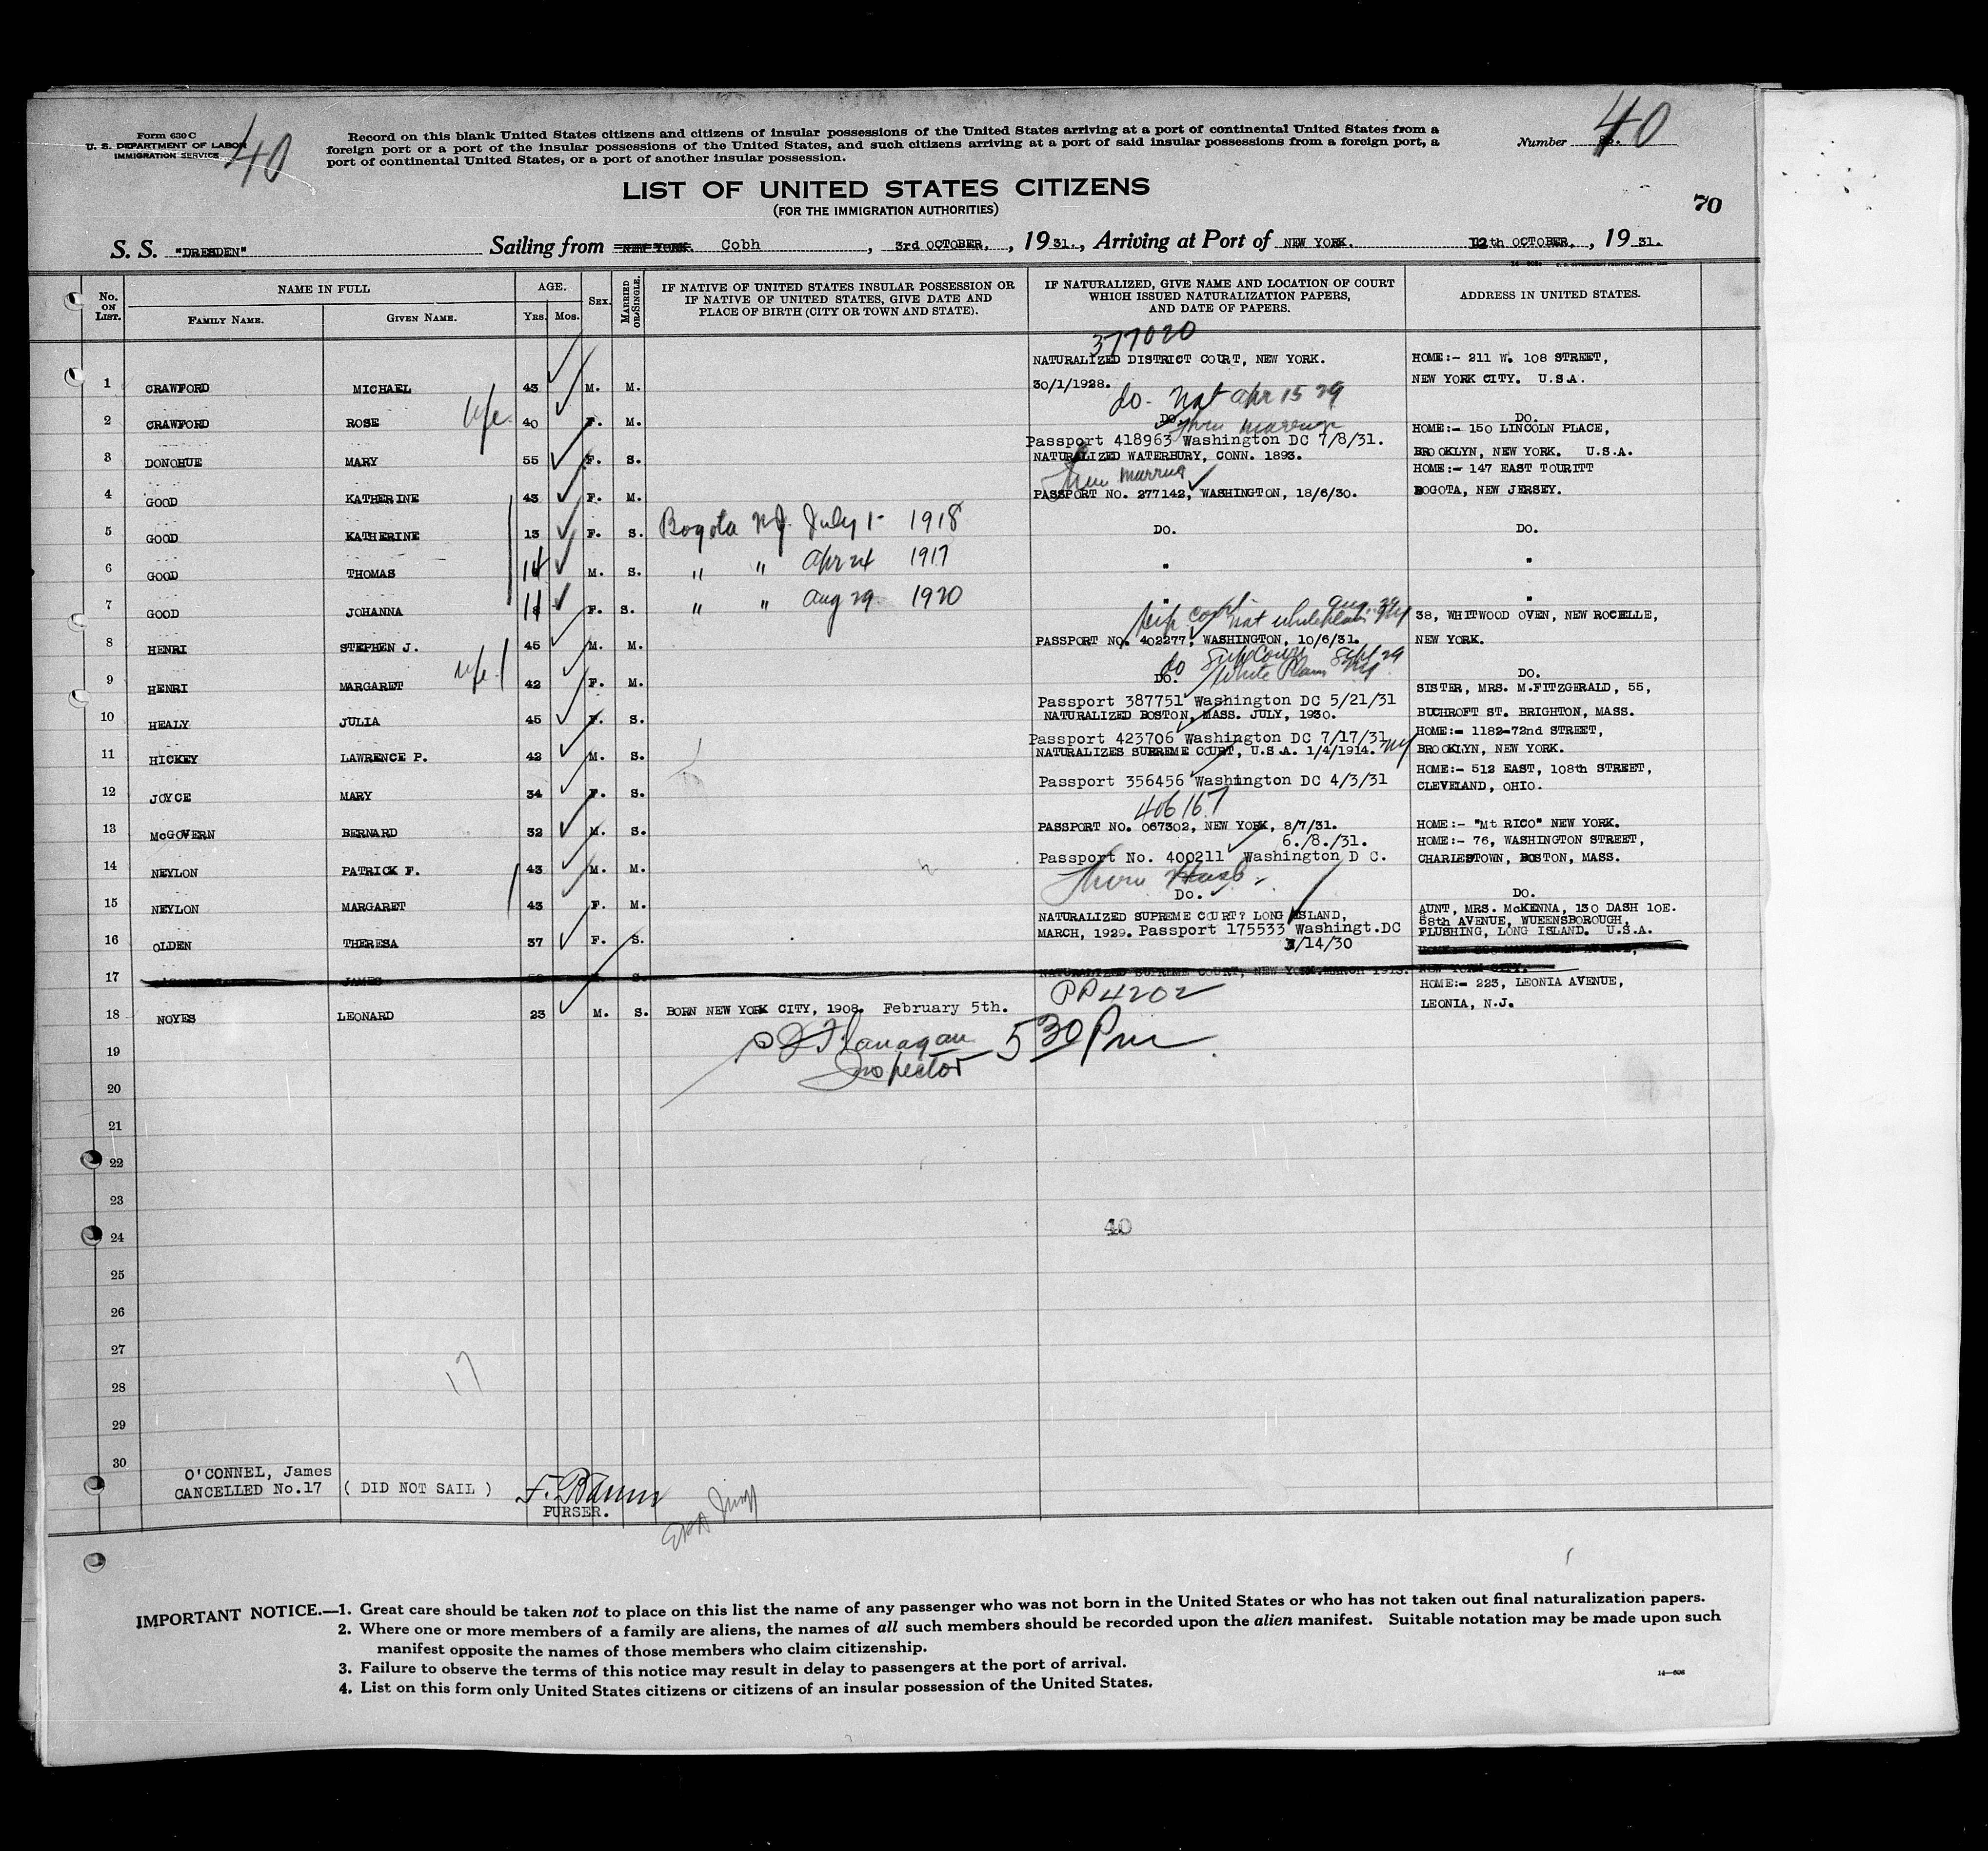 Form 630 C
U. S. DEPARTMENT OF LABOR
IMMIGRATION SERVICE
40
Record on this blank United States citizens and citizens of insular possessions of the United States arriving at a port of continental United States from a
foreign port or a port of the insular possessions of the United States, and such citizens arriving at a port of said insular possessions from a foreign port, a
port of continental United States, or a port of another insular possession.
Number
40
LIST OF UNITED STATES CITIZENS
(FOR THE IMMIGRATION AUTHORITIES)
70
S. S. "DRESDEN" Sailing from NEW YORK. Cobh, 3rd OCTOBER, 1931., Arriving at Port of NEW YORK. 12th OCTOBER, 1931.
No. ON LIST.
NAME IN FULL
FAMILY NAME.
GIVEN NAME.
AGE.
YRS. MOS.
SEX.
MARRIED OR SINGLE.
IF NATIVE OF UNITED STATES INSULAR POSSESSION OR
IF NATIVE OF UNITED STATES, GIVE DATE AND
PLACE OF BIRTH (CITY OR TOWN AND STATE).
IF NATURALIZED, GIVE NAME AND LOCATION OF COURT
WHICH ISSUED NATURALIZATION PAPERS,
AND DATE OF PAPERS.
ADDRESS IN UNITED STATES.
377020
NATURALIZED DISTRICT COURT, NEW YORK. HOME:- 211 W. 108 STREET,
1 CRAWFORD MICHAEL 43 M. M. 30/1/1928. NEW YORK CITY. U.S.A.
do. Nat Apr 15 29
2 CRAWFORD ROSE wife 40 F. M. DO. thru marriage DO.
Passport 418963 Washington DC 7/8/31. HOME:- 150 LINCOLN PLACE,
3 DONOHUE MARY 55 F. S. NATURALIZED WATERBURY, CONN. 1893. BROOKLYN, NEW YORK. U.S.A.
thru marriag HOME:- 147 EAST TOURITT
4 GOOD KATHERINE 43 F. M. PASSPORT NO. 277142, WASHINGTON, 18/6/30. BOGOTA, NEW JERSEY.
5 GOOD KATHERINE 13 F. S. Bogota NJ. July 1- 1918 DO. DO.
6 GOOD THOMAS 14 M. S. " " Apr 24 1917 " "
7 GOOD JOHANNA 11 F. S. " " Aug 29 1920 " "
Sup Court Nat White Plains Aug 29 NY 38, WHITWOOD OVEN, NEW ROCELLE,
8 HENRI STEPHEN J. 45 M. M. PASSPORT NO. 402277, WASHINGTON, 10/6/31. NEW YORK.
do Sup Court Sept 29
9 HENRI MARGARET wife 42 F. M. DO. White Plains NY DO.
Passport 387751 Washington DC 5/21/31 SISTER, MRS. M.FITZGERALD, 55,
10 HEALY JULIA 45 F. S. NATURALIZED BOSTON, MASS. JULY, 1930. BUCHROFT ST. BRIGHTON, MASS.
Passport 423706 Washington DC 7/17/31 HOME:- 1182-72nd STREET,
11 HICKEY LAWRENCE P. 42 M. S. NATURALIZES SUPREME COURT, U.S.A. 1/4/1914. NY BROOKLYN, NEW YORK.
HOME:- 512 EAST, 108th STREET,
12 JOYCE MARY 34 F. S. Passport 356456 Washington DC 4/3/31 CLEVELAND, OHIO.
406167
13 McGOVERN BERNARD 32 M. S. PASSPORT NO. 067302, NEW YORK, 8/7/31. HOME:- "Mt RICO" NEW YORK.
6./8./31. HOME:- 76, WASHINGTON STREET,
14 NEYLON PATRICK F. 43 M. M. Passport No. 400211 Washington D C. CHARLESTOWN, BOSTON, MASS.
thru Husb.
15 NEYLON MARGARET 43 F. M. DO. DO.
NATURALIZED SUPREME COURT? LONG ISLAND, AUNT, MRS. McKENNA, 130 DASH 10E.
58th AVENUE, WUEENSBOROUGH,
16 OLDEN THERESA 37 F. S. MARCH, 1929. Passport 175533 Washingt.DC FLUSHING, LONG ISLAND. U.S.A.
/14/30
17 JAMES S. NATURALIZED SUPREME COURT, NEW YORK.MARCH 1913. NEW YORK CITY.
PP 4202 HOME:- 223, LEONIA AVENUE,
18 NOYES LEONARD 23 M. S. BORN NEW YORK CITY, 1908. February 5th. LEONIA, N.J.
19 Flanagan 5 30 Pm
Inspector
20
21
22
23
24 40
25
26
27
28 17
29
30
O'CONNEL, James
CANCELLED No.17 ( DID NOT SAIL )
PURSER.
IMPORTANT NOTICE.—1. Great care should be taken not to place on this list the name of any passenger who was not born in the United States or who has not taken out final naturalization papers.
2. Where one or more members of a family are aliens, the names of all such members should be recorded upon the alien manifest. Suitable notation may be made upon such
manifest opposite the names of those members who claim citizenship.
3. Failure to observe the terms of this notice may result in delay to passengers at the port of arrival.
4. List on this form only United States citizens or citizens of an insular possession of the United States.